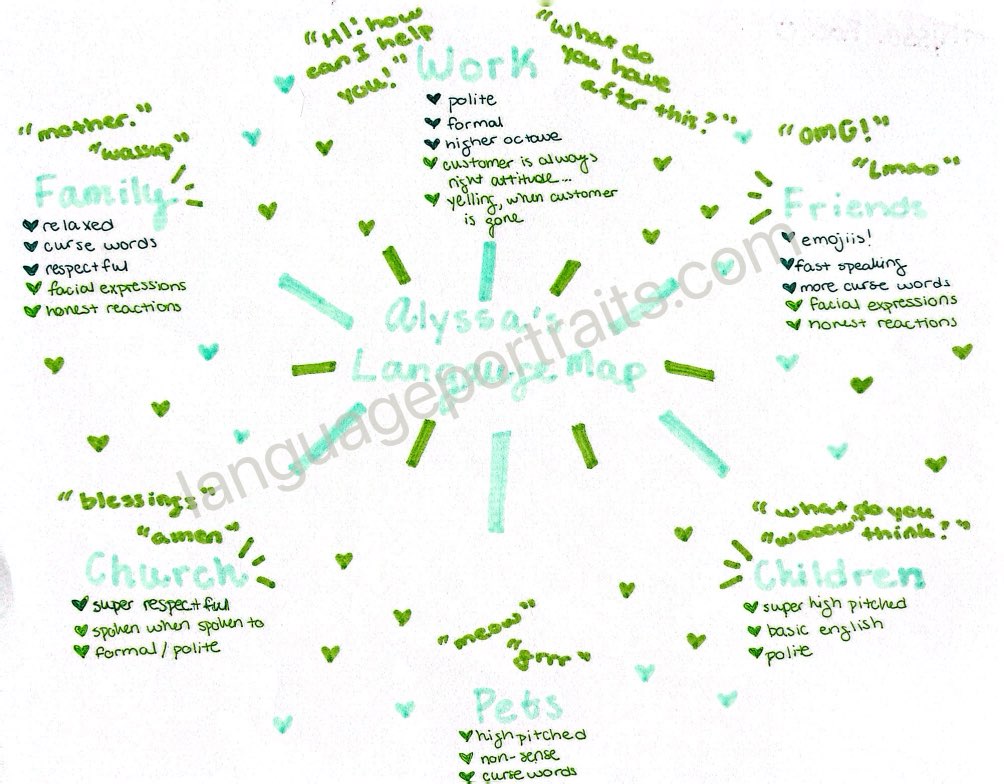 "Hi! how
can I help
you!"
Work
polite
formal
higher octave
customer is always
right attitude...
yelling, when customer
is gone
"what do
you have
after this?"
"mother."
"wassup"
Family
relaxed
curse words
respectful
facial expressions
honest reactions
"OMG!"
"Lmao"
Friends
emojiis!
fast speaking
more curse words
facial expressions
honest reactions
Alyssa's
Language Map
languageportraits.com
"blessings"
"amen"
Church
super respectful
spoken when spoken to
formal/polite
"what do you
think?"
"wooow"
Children
super high pitched
basic english
polite
"meow"
"grrr"
Pets
high pitched
non-sense
curse words